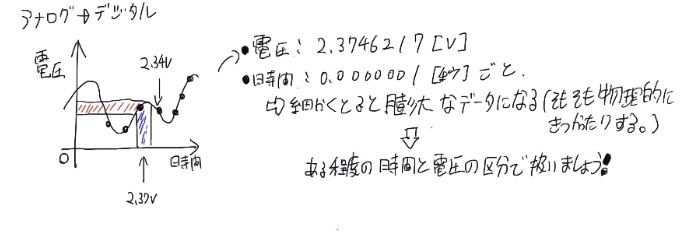 アナログ→デジタル
電圧
2.34V
0
時間
2.37V
・電圧：2.3746217[V]
・時間：0.0000001[秒]ごと.
⇨細かくとると膨大なデータになる(そもそも物理的に
きつかったりする。)
⇩
ある程度の時間と電圧の区分で扱いましょう！